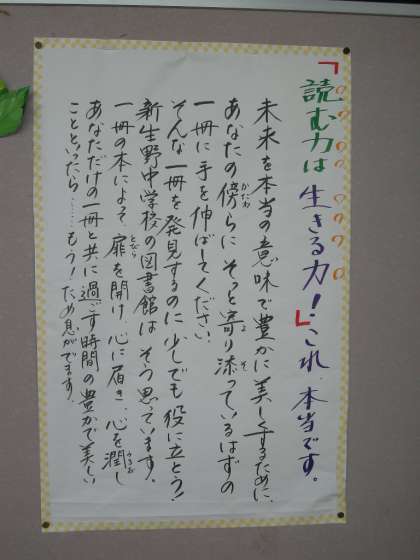 「読む力は生きる力!」これ、本当です。
未来を本当の意味で豊かに美しくするために、
あなたの傍らにそっと寄り添っているはずの
一冊に手を伸ばしてください。
そんな一冊を発見するのに少しでも役に立とう!
新生野中学校の図書館はそう思っています。
一冊の本によって扉を開け、心に届き、心を潤し
あなただけの一冊と共に過ごす時間の豊かで美しい
ことといったら……もう!ため息がでます。